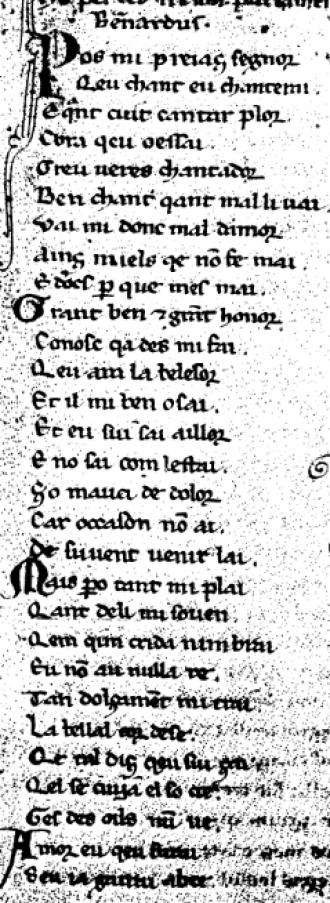 Bẽnardus.
Pos mi preiaç segnor
Qeu chant eu chanterai.
E qãnt cuit cantar plor
Cora qeu oessai.
Greu ueres chantador
Ben chant qant mal li uai.
Vai mi donc mal damor
Ainç miels qe nõ fe mai.
E dõcs p que mes mai.
Grant ben ⁊ grãt honor
Conosc qa des mi fai.
Qeu am la belesor
Et il mi ben o sai.
Et eu sui sai aillor
E no sai com lestai.
So mauci de dolor
Car occasion nõ ai.
De suuent uenir lai.
Mais po tant mi plai
Qant deli mi souen
Qem qim crida nim brai
Eu nõ au nulla re.
Tan dolçamẽt mi trai
La bella cor dese.
Qe tal diç qeu sui
Qel se cuja el so cre.
Ges des oils nũ ue.
Amor eu qeu farai